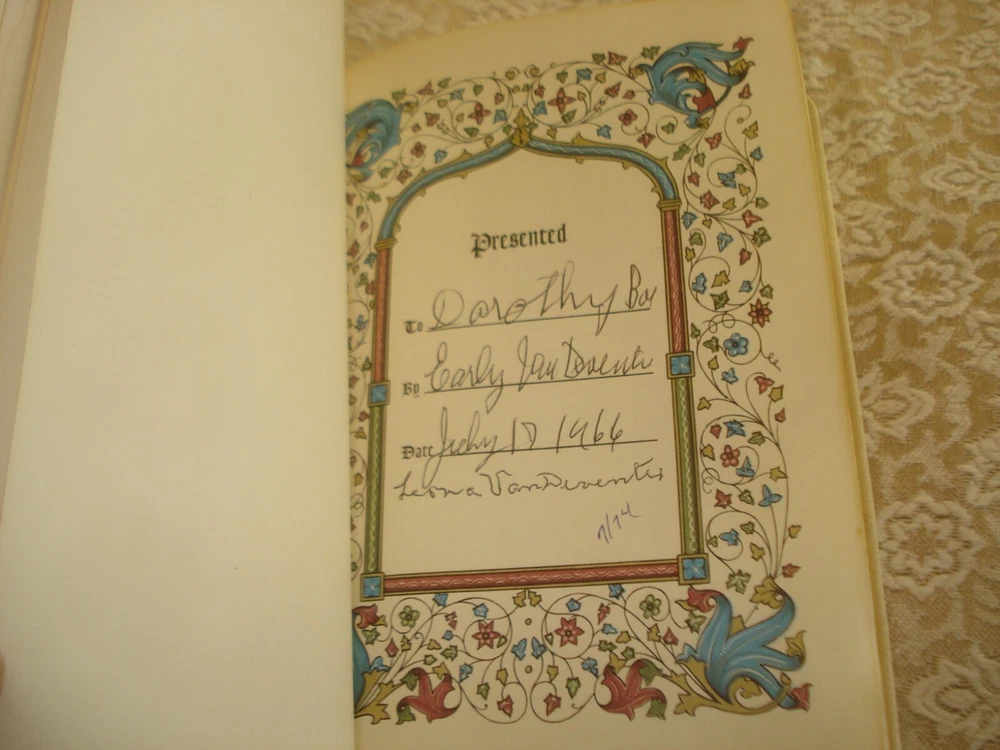 Presented
To Dorothy Boy
By Early VanDeventer
Date July 17 1966
Leona VanDeventer